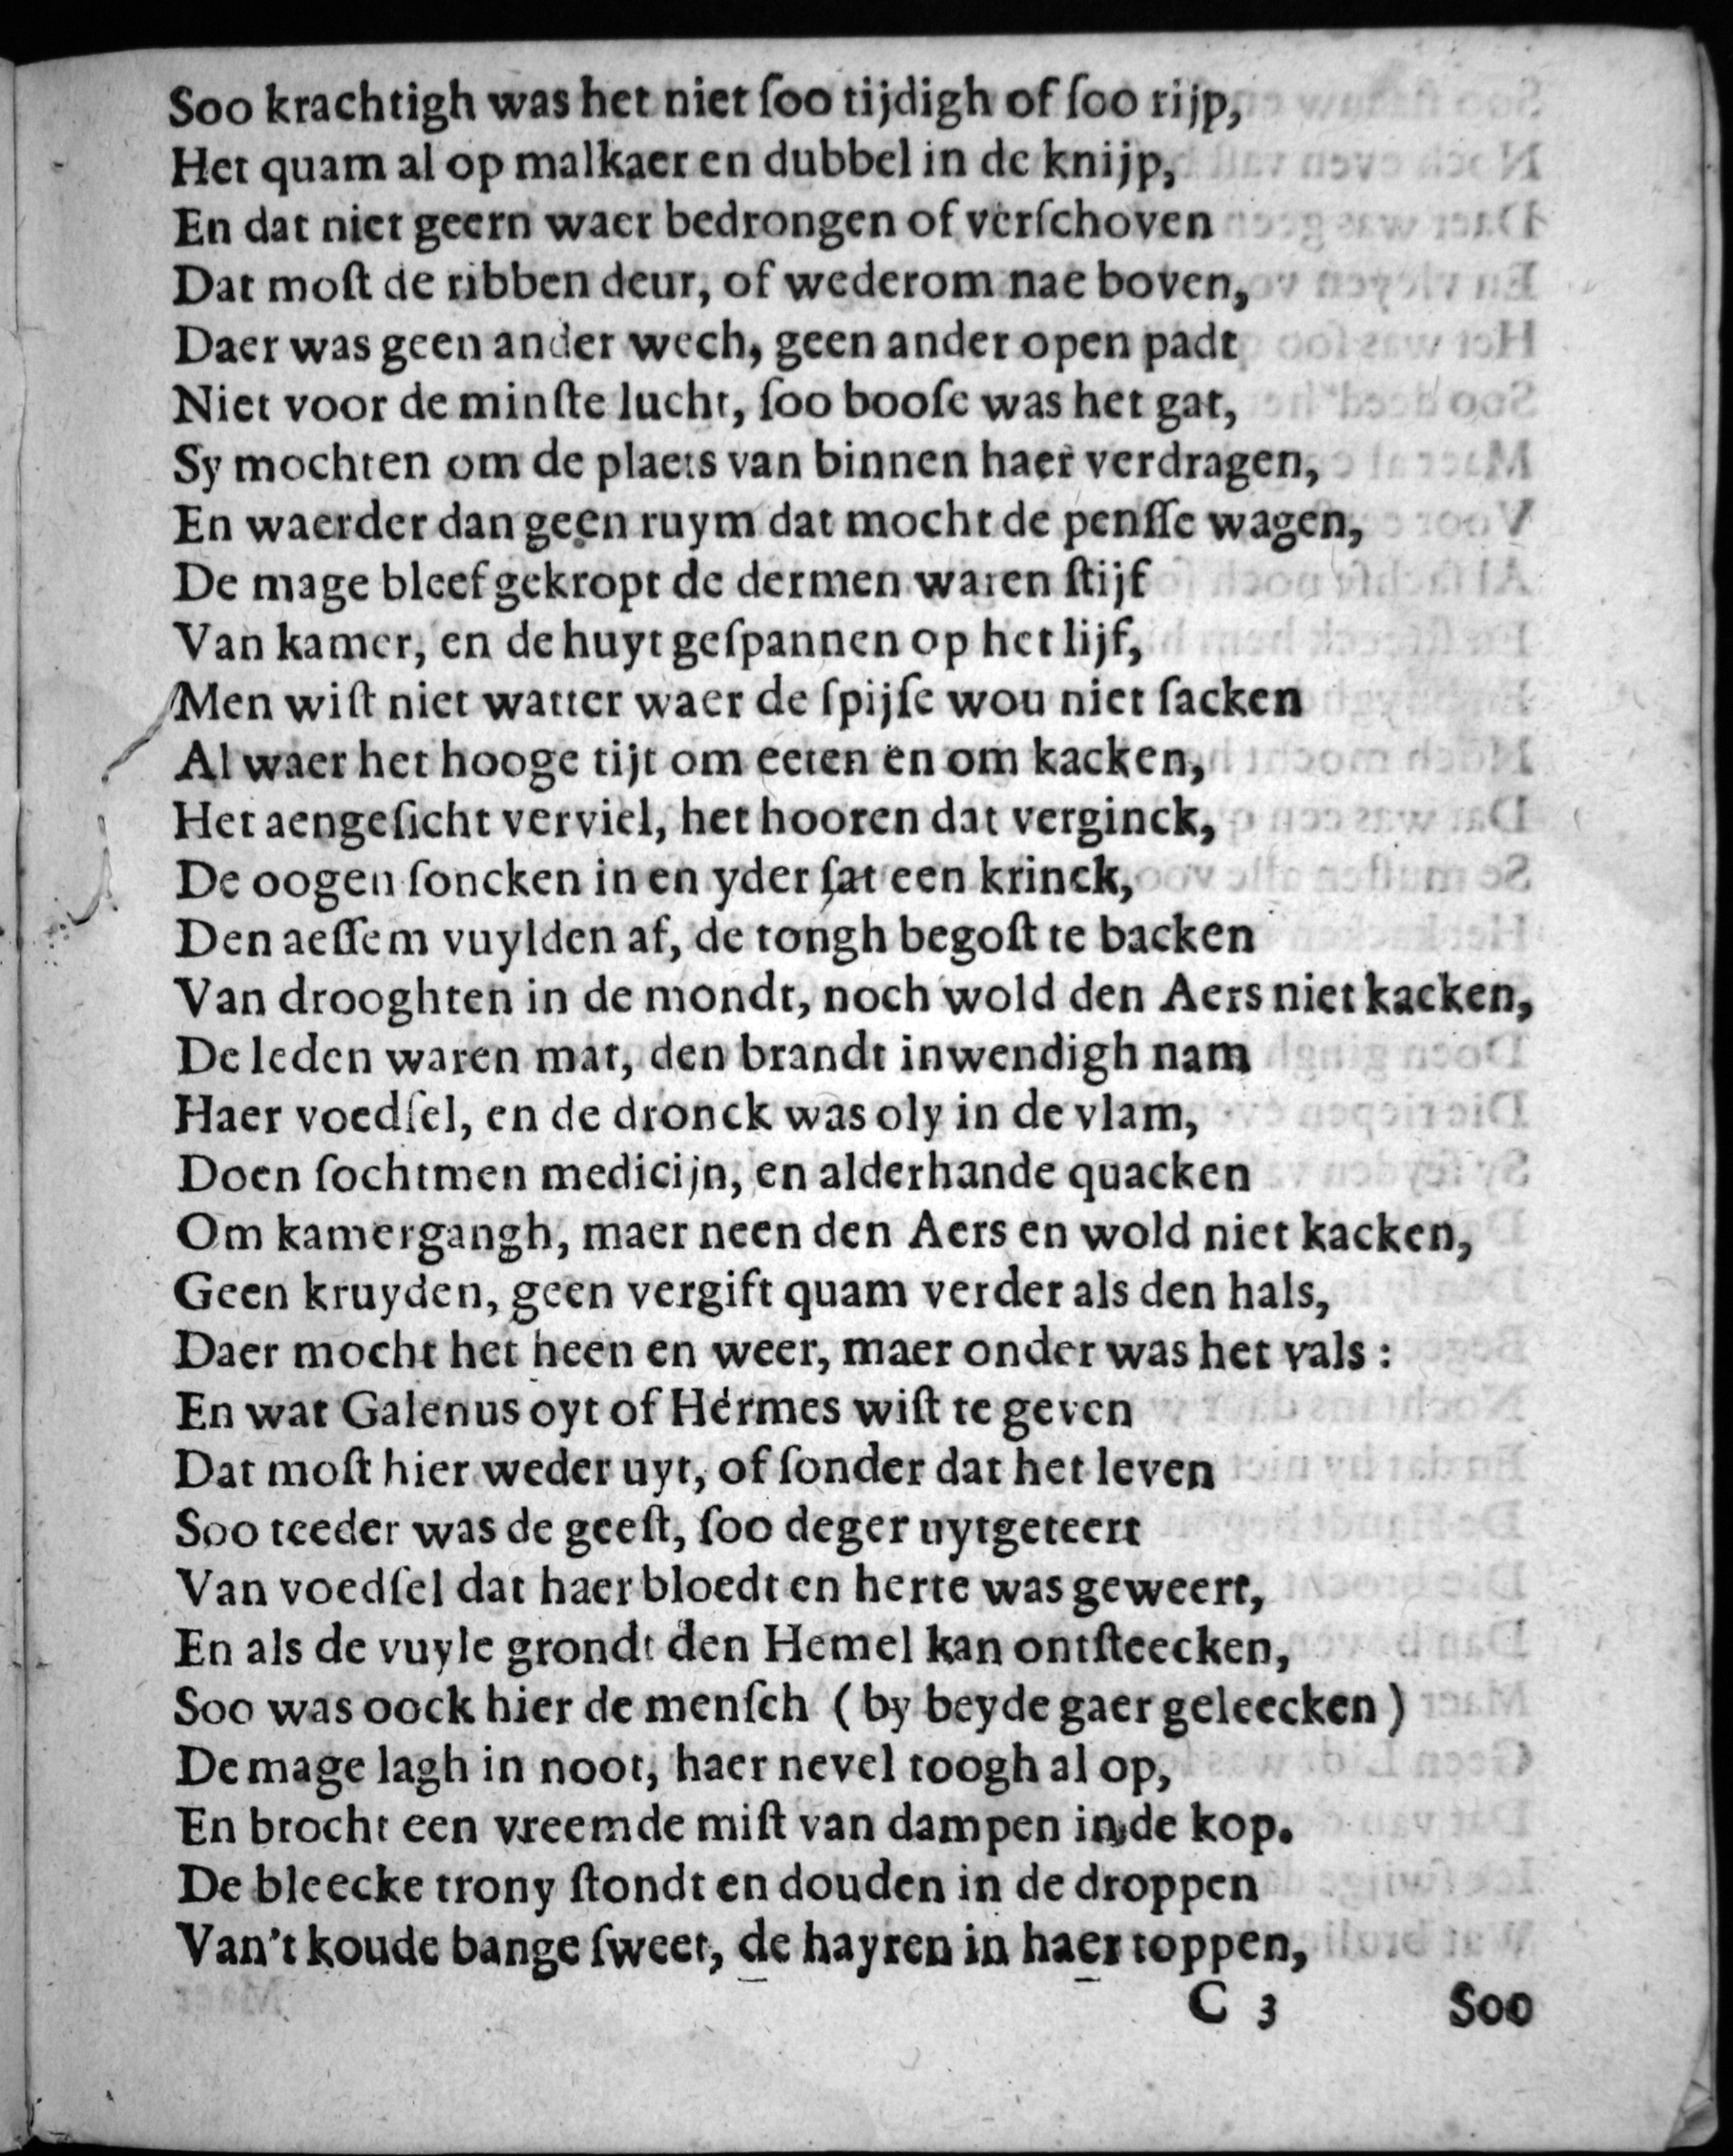 Soo krachtigh was het niet ſoo tijdigh of ſoo rijp,
Het quam al op malkaer en dubbel in de knijp,
En dat niet geern waer bedrongen of verſchoven
Dat moſt de ribben deur, of wederom nae boven,
Daer was geen ander wech, geen ander open padt
Niet voor de minſte lucht, ſoo booſe was het gat,
Sy mochten om de plaets van binnen haer verdragen,
En waerder dan geen ruym dat mocht de penſſe wagen,
De mage bleef gekropt de dermen waren ſtijf
Van kamer, en de huyt geſpannen op het lijf,
Men wiſt niet watter waer de ſpijſe wou niet ſacken
Al waer het hooge tijt om eeten en om kacken,
Het aengeſicht verviel, het hooren dat verginck,
De oogen ſoncken in en yder ſat een krinck,
Den aeſſem vuylden af, de tongh begoſt te backen
Van drooghten in de mondt, noch wold den Aers niet kacken,
De leden waren mat, den brandt inwendigh nam
Haer voedſel, en de dronck was oly in de vlam,
Doen ſochtmen medicijn, en alderhande quacken
Om kamergangh, maer neen den Aers en wold niet kacken,
Geen kruyden, geen vergift quam verder als den hals,
Daer mocht het heen en weer, maer onder was het vals :
En wat Galenus oyt of Hérmes wiſt te geven
Dat moſt hier weder uyt, of ſonder dat het leven
Soo teeder was de geeſt, ſoo deger uytgeteert
Van voedſel dat haer bloedt en herte was geweert,
En als de vuyle grondt den Hemel kan ontſteecken,
Soo was oock hier de menſch ( by beyde gaer geleecken )
De mage lagh in noot, haer nevel toogh al op,
En brocht een vreemde miſt van dampen in de kop.
De bleecke trony ſtondt en douden in de droppen
Van't koude bange ſweet, de hayren in haer toppen,
C 3 Soo